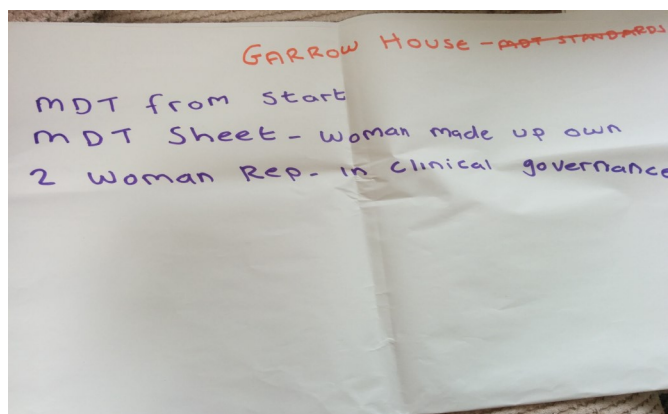 GARROW HOUSE - MDT STANDARDS
MDT from start
MDT Sheet - woman made up own
2 woman Rep. in clinical governance